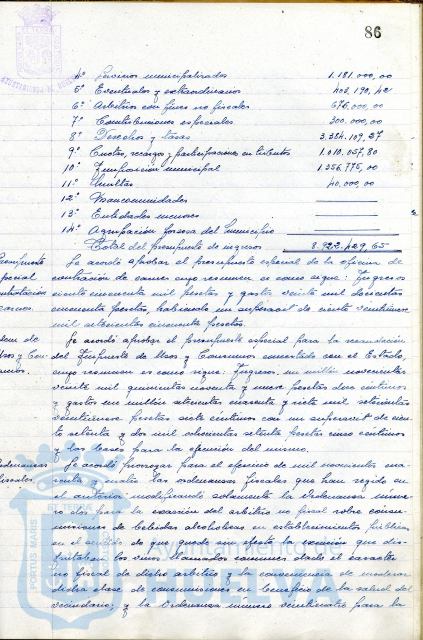 86
4º Servicios municipalizados 1.181.000,00
5º Eventuales y extraordinarios 403.190,42
6º Arbitrios con fines no fiscales 676.000,00
7º Contribuciones especiales 300.000,00
8º Derechos y tasas 3.384.109,27
9º Cuotas, recargos y participaciones en tributos 1.010.057,80
10º Imposición municipal 1.356.775,00
11º Multas 40.000,00
12º Mancomunidades
13º Entidades menores
14º Agrupación forzosa del Municipio
Total del presupuesto de ingresos 8.922.429,65
Se acordó aprobar el presupuesto especial de la oficina de
contratación de carnes cuyo resumen es como sigue: Ingresos
ciento cincuenta mil pesetas y gastos veinte mil doscientas
cincuenta pesetas, habiendo un superavit de ciento veintinueve
mil setecientas cincuenta pesetas.
Se acordó aprobar el presupuesto especial para la recaudación
del Impuesto de Usos y Consumos concertado con el Estado,
cuyo resumen es como sigue: Ingresos, un millón novecientas
veinte mil quinientas noventa y nueve pesetas doce centimos
y gastos un millón setecientas cuarenta y siete mil setecientas
veintinueve pesetas siete centimos con un superavit de cien-
to setenta y dos mil ochocientas setenta pesetas cinco centimos
y las bases para la ejecución del mismo.
Se acordó prorrogar para el ejercicio de mil novecientos cua-
renta y cuatro las ordenanzas fiscales que han regido en
el anterior modificando solamente la Ordenanza núme-
ro dos para la exacción del arbitrio no fiscal sobre consu-
misiones de bebidas alcoholicas en establecimientos públicos
en el sentido de que quede sin efecto la exención que dis-
frutaban los vinos llamados comunes dado el caracter
no fiscal de dicho arbitrio y la conveniencia de moderar
dicha clase de consumiciones en beneficio de la salud del
vecindario; y la Ordenanza número veinticuatro para la